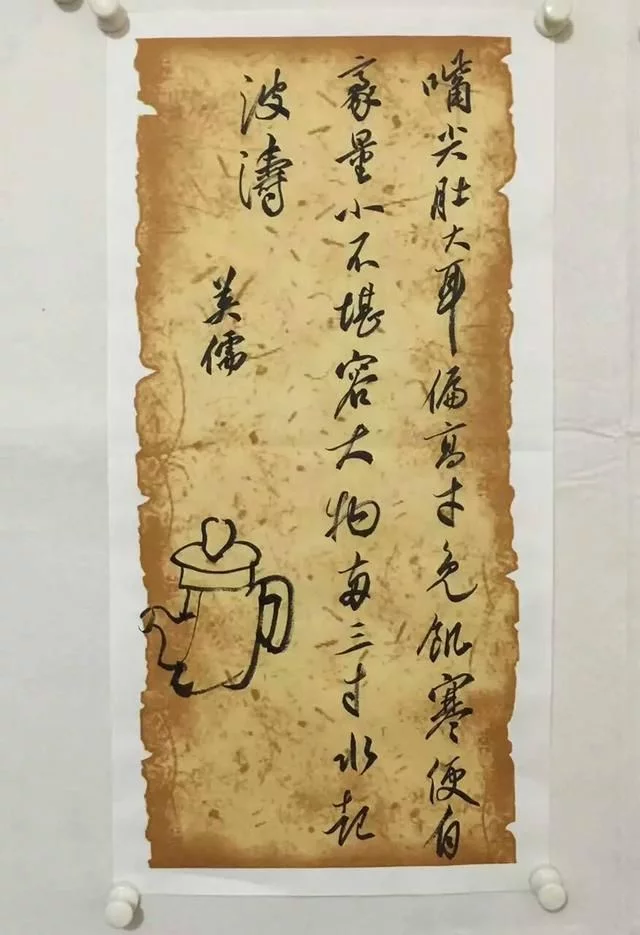 嘴尖肚大耳偏高才免飢寒便自
豪量小不堪容大物两三寸水起
波濤
儒